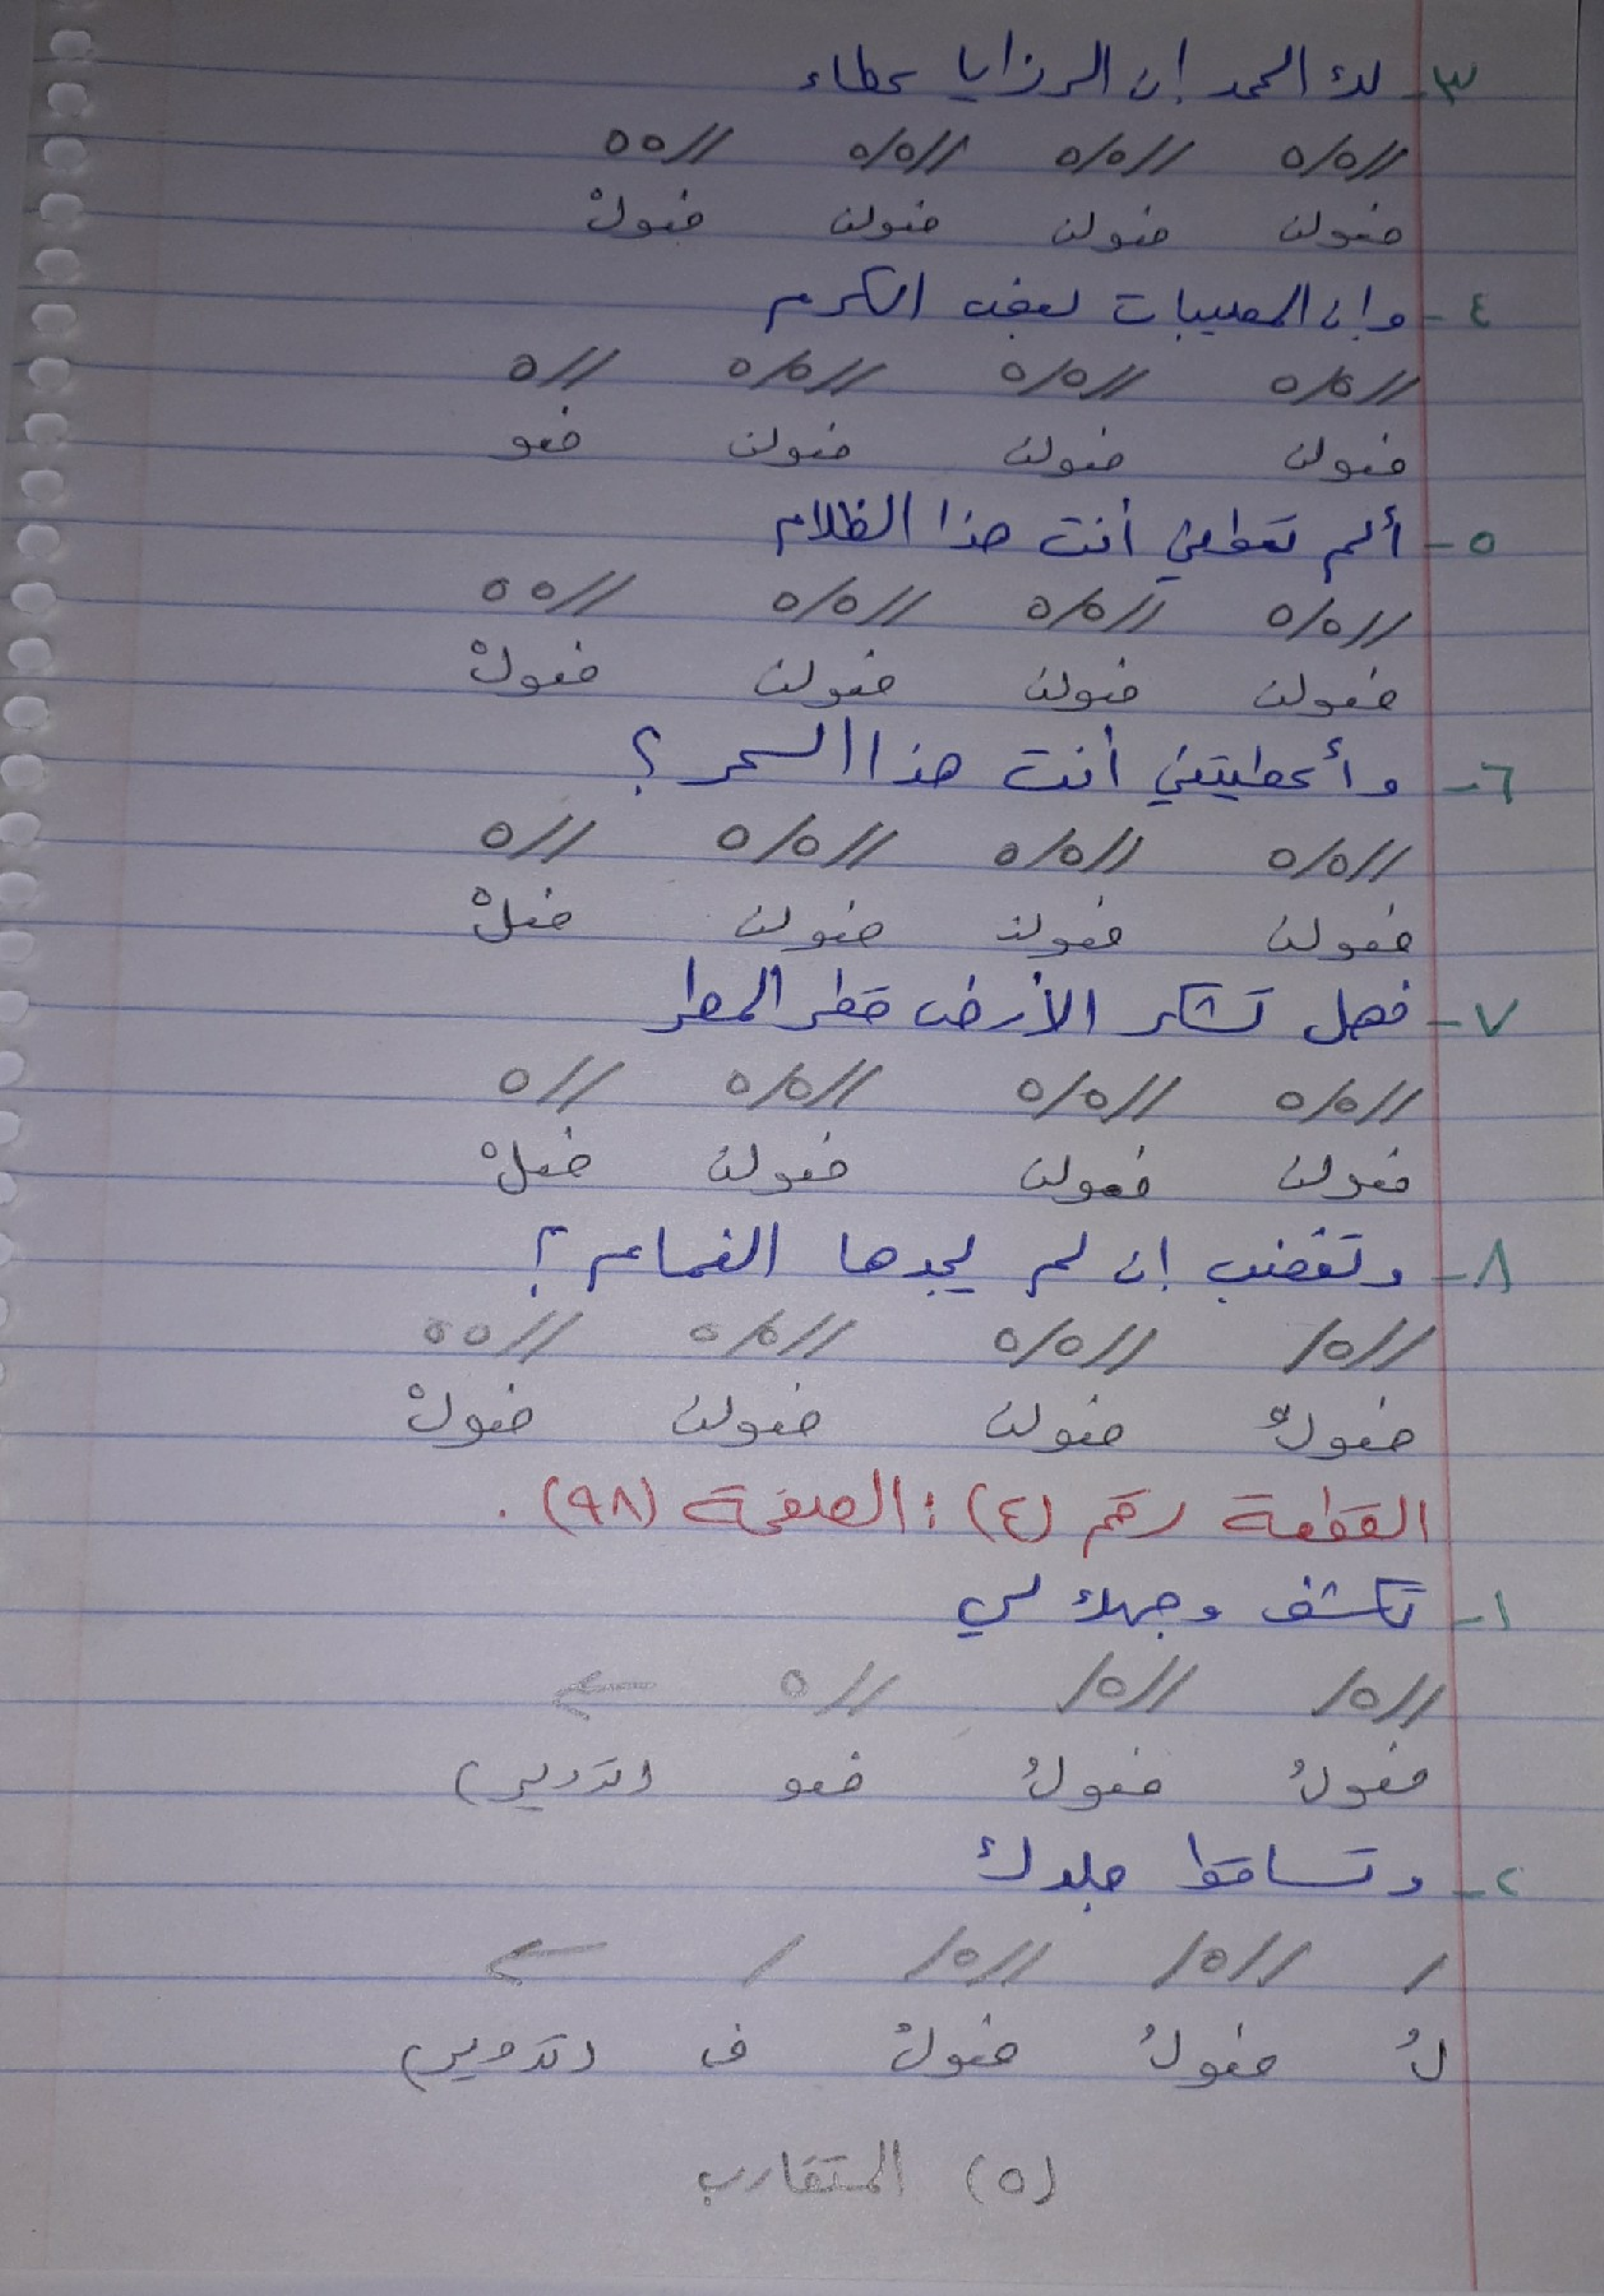 ٣- لك الحمد إن الرزايا عطاء
//٥/٥ //٥/٥ //٥/٥ //٥٥
فعولن فعولن فعولن فعولْ
٤- وإن المصيبات بعض الكرم
//٥/٥ //٥/٥ //٥/٥ //٥
فعولن فعولن فعولن فعو
٥- ألم تعطني أنت هذا الظلام
//٥/٥ //٥/٥ //٥/٥ //٥٥
فعولن فعولن فعولن فعولْ
٦- وأعطيتني أنت هذا السحر؟
//٥/٥ //٥/٥ //٥/٥ //٥
فعولن فعولن فعولن فعلْ
٧- فهل تشكر الأرض قطر المطر
//٥/٥ //٥/٥ //٥/٥ //٥
فعولن فعولن فعولن فعلْ
٨- وتغضب إن لم يجدها الغمام؟
//٥/ //٥/٥ //٥/٥ //٥٥
فعولُ فعولن فعولن فعولْ
القطعة رقم (٤): الصفحة (٩٨).
١- تكشف وجهك لي
//٥/ //٥/ //٥ ←
فعولُ فعولُ فعو (تدوير)
٢- وتساقط جلدك
/ //٥/ //٥/ / ←
لُ فعولُ فعولُ ف (تدوير)
(٥) المتقارب